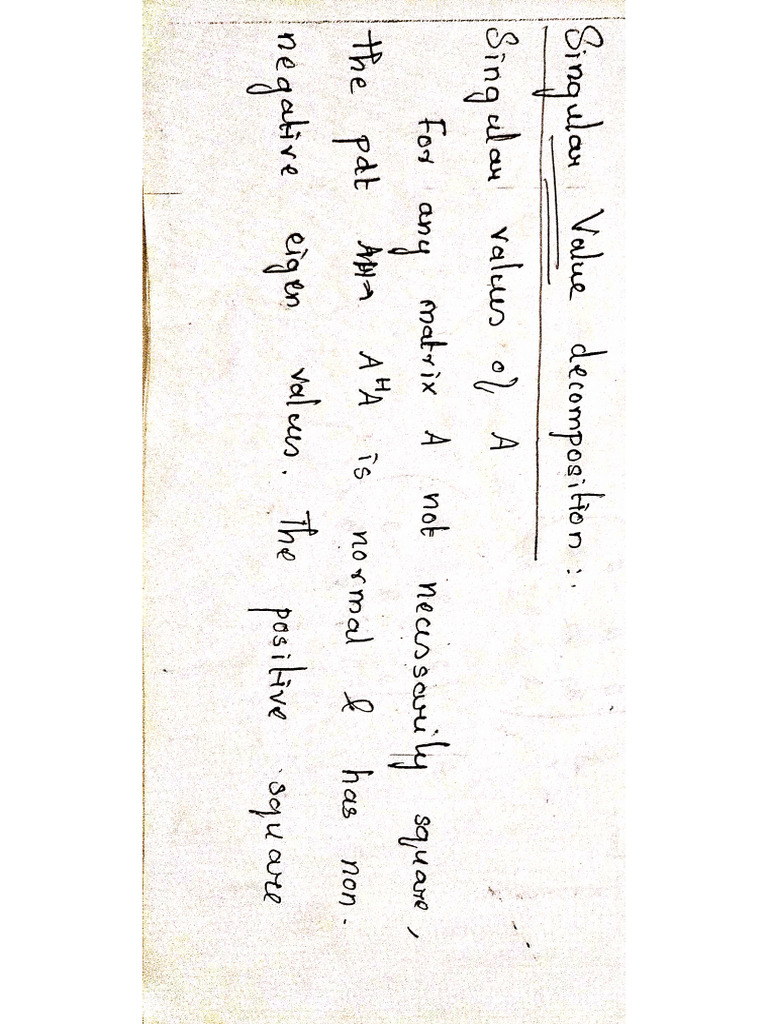 Singular Value decomposition:.
Singular values of A
For any matrix A not necessarily square,
the pdt AᴴA is normal & has non-
negative eigen values. The positive square